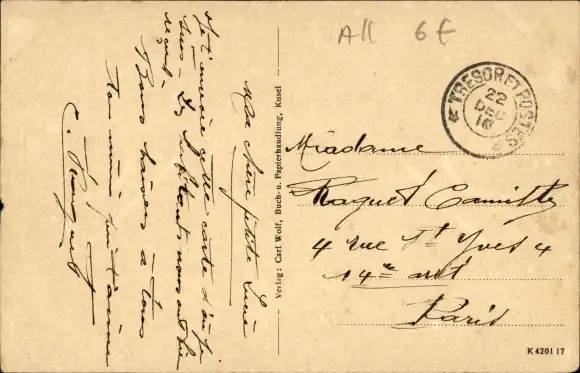 All 6 f
TRESOR ET POSTES
22
DEC
18
Madame
Raguet Camille
4 rue St Yves 4
14me arrt
Paris
Ma chère petite
Je t'envoie cette carte d'où je
suis
nous ont
reçus
Bons baisers à tous
Ton mari qui t'aime
C. Raguet
Verlag: Carl Wolf, Buch- u. Papierhandlung, Kusel
K 4201 17